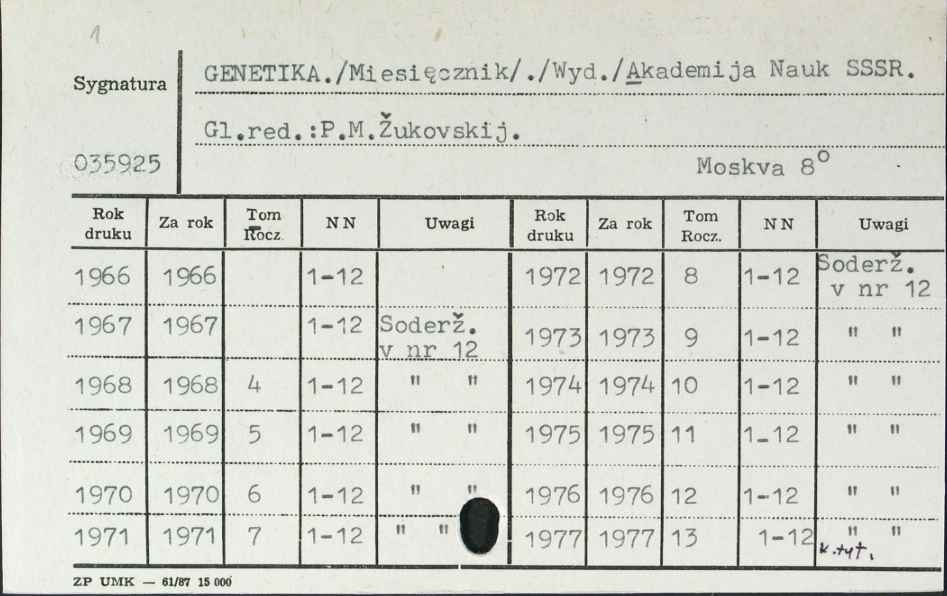 1
Sygnatura
GENETIKA./Miesięcznik/./Wyd./Akademija Nauk SSSR.
Gl.red.:P.M.Žukovskij.
035925
Moskva 8°
Rok druku Za rok Tom Rocz. N N Uwagi Rok druku Za rok Tom Rocz. N N Uwagi
1966 1966 1-12 1972 1972 8 1-12 Soderž. v nr 12
1967 1967 1-12 Soderž. v nr 12 1973 1973 9 1-12 " "
1968 1968 4 1-12 " " 1974 1974 10 1-12 " "
1969 1969 5 1-12 " " 1975 1975 11 1-12 " "
1970 1970 6 1-12 " " 1976 1976 12 1-12 " "
1971 1971 7 1-12 " " 1977 1977 13 1-12 " "
k.tyt.
ZP UMK — 61/87 15 000